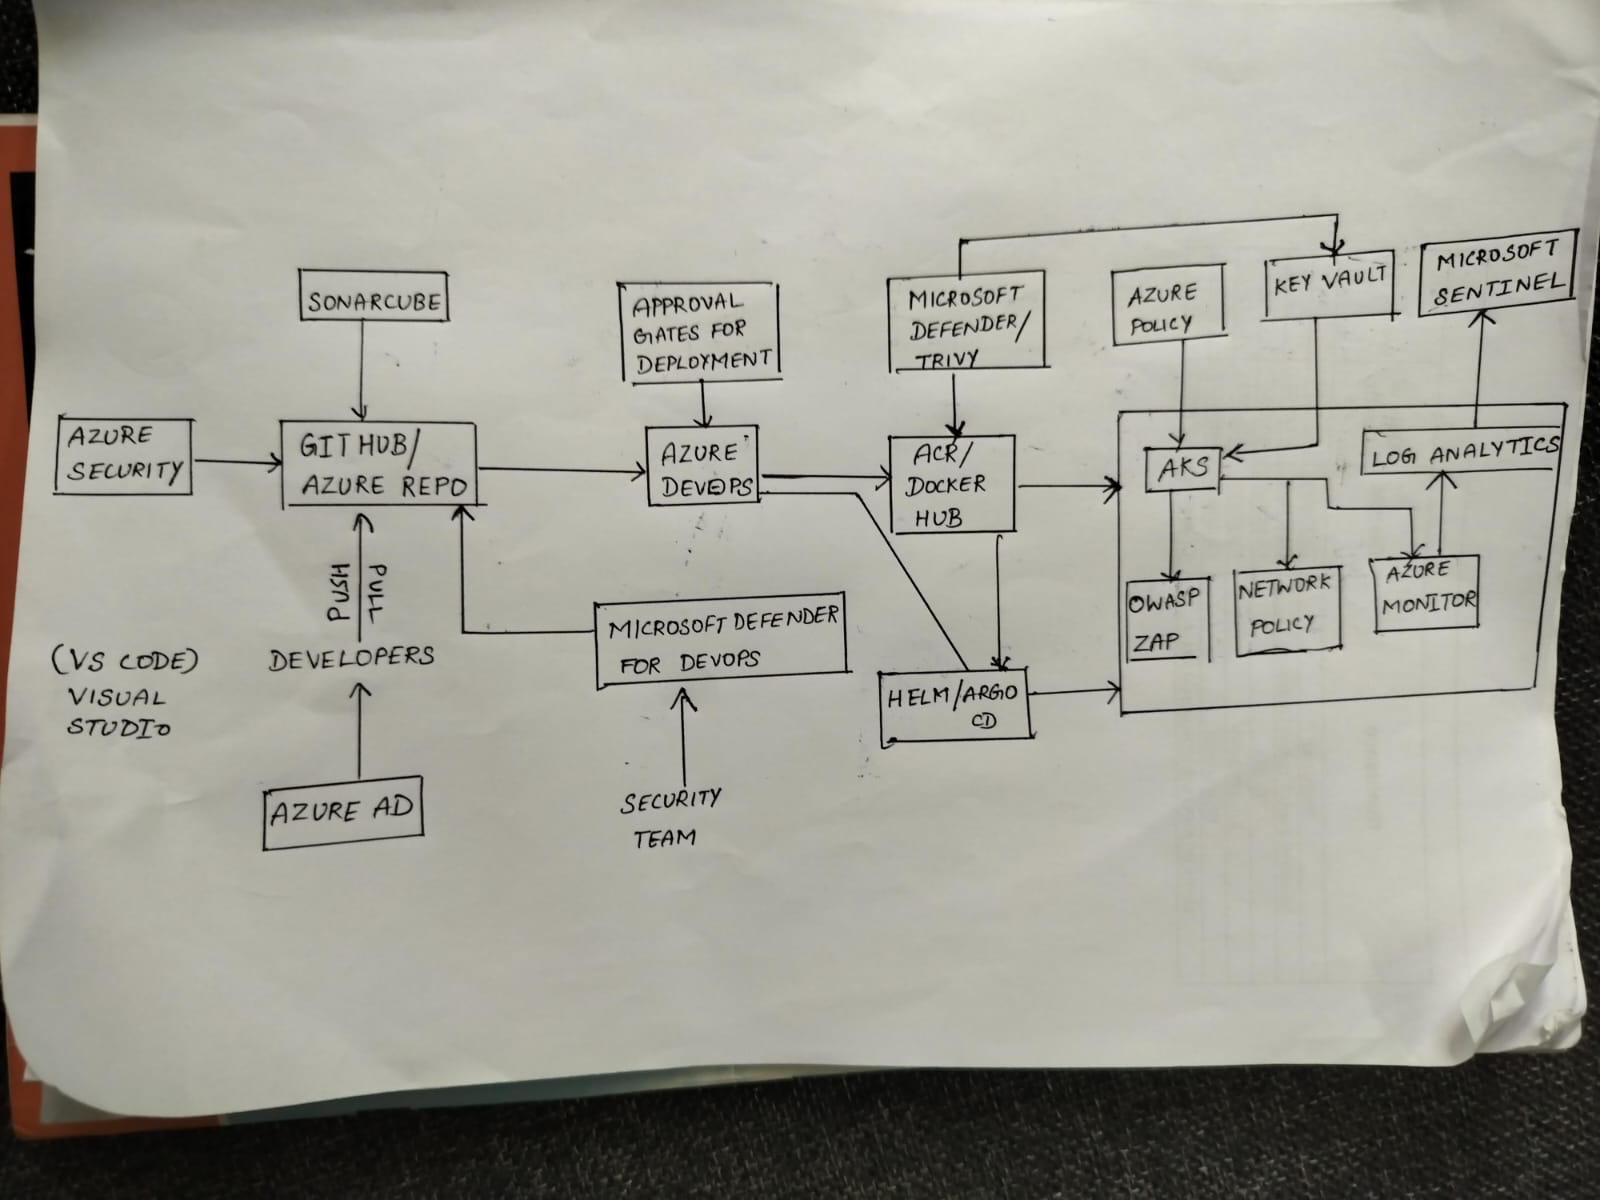 SONARCUBE
APPROVAL
GATES FOR
DEPLOYMENT
MICROSOFT
DEFENDER/
TRIVY
AZURE
POLICY
KEY VAULT
MICROSOFT
SENTINEL
AZURE
SECURITY
GIT HUB/
AZURE REPO
AZURE
DEVOPS
ACR/
DOCKER
HUB
AKS
LOG ANALYTICS
PUSH
PULL
OWASP
ZAP
NETWORK
POLICY
AZURE
MONITOR
(VS CODE)
VISUAL
STUDIO
DEVELOPERS
MICROSOFT DEFENDER
FOR DEVOPS
HELM/ARGO
CD
AZURE AD
SECURITY
TEAM